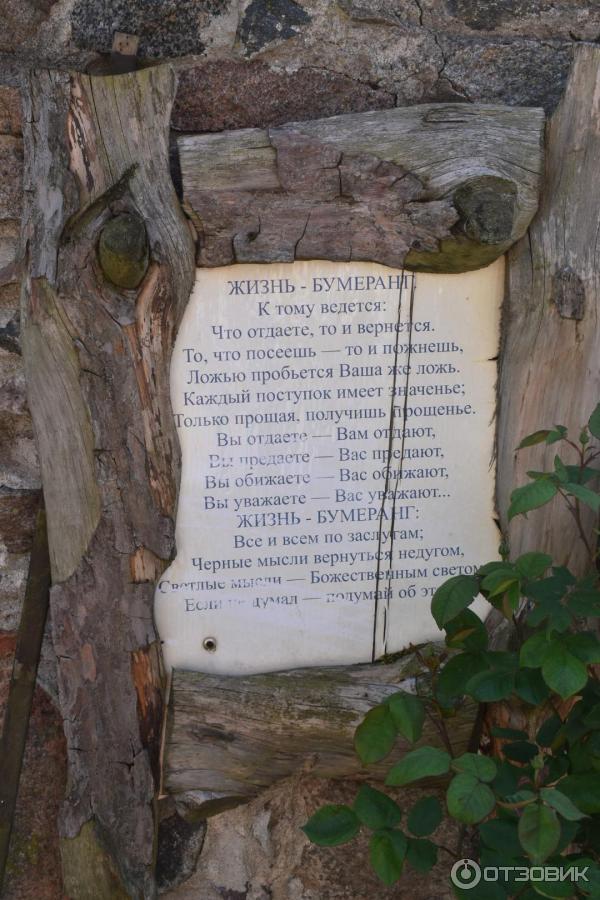 ЖИЗНЬ - БУМЕРАНГ.
К тому ведется:
Что отдаете, то и вернется.
То, что посеешь — то и пожнешь,
Ложью пробьется Ваша же ложь.
Каждый поступок имеет значенье;
Только прощая, получишь прощенье.
Вы отдаете — Вам отдают,
Вы предаете — Вас предают,
Вы обижаете — Вас обижают,
Вы уважаете — Вас уважают...
ЖИЗНЬ - БУМЕРАНГ:
Все и всем по заслугам;
Черные мысли вернуться недугом,
Светлые мысли — Божественным светом
Если не думал — подумай об
ОТЗОВИК